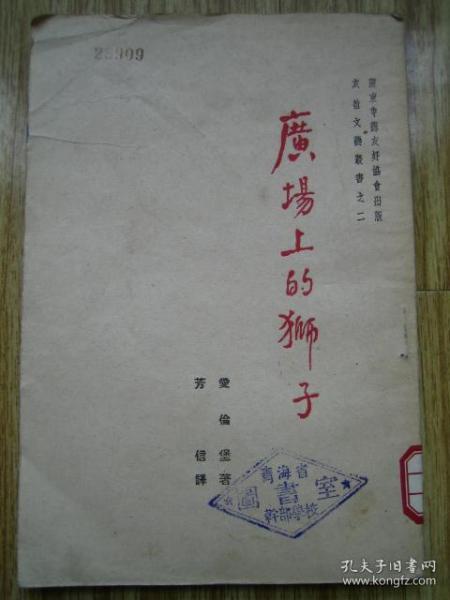 23909
關東中蘇友好協會出版
友誼文藝叢書之二
廣場上的獅子
愛倫堡著
芳信譯
青海省
圖書室
幹部學校
孔夫子旧书网
www.kongfz.com